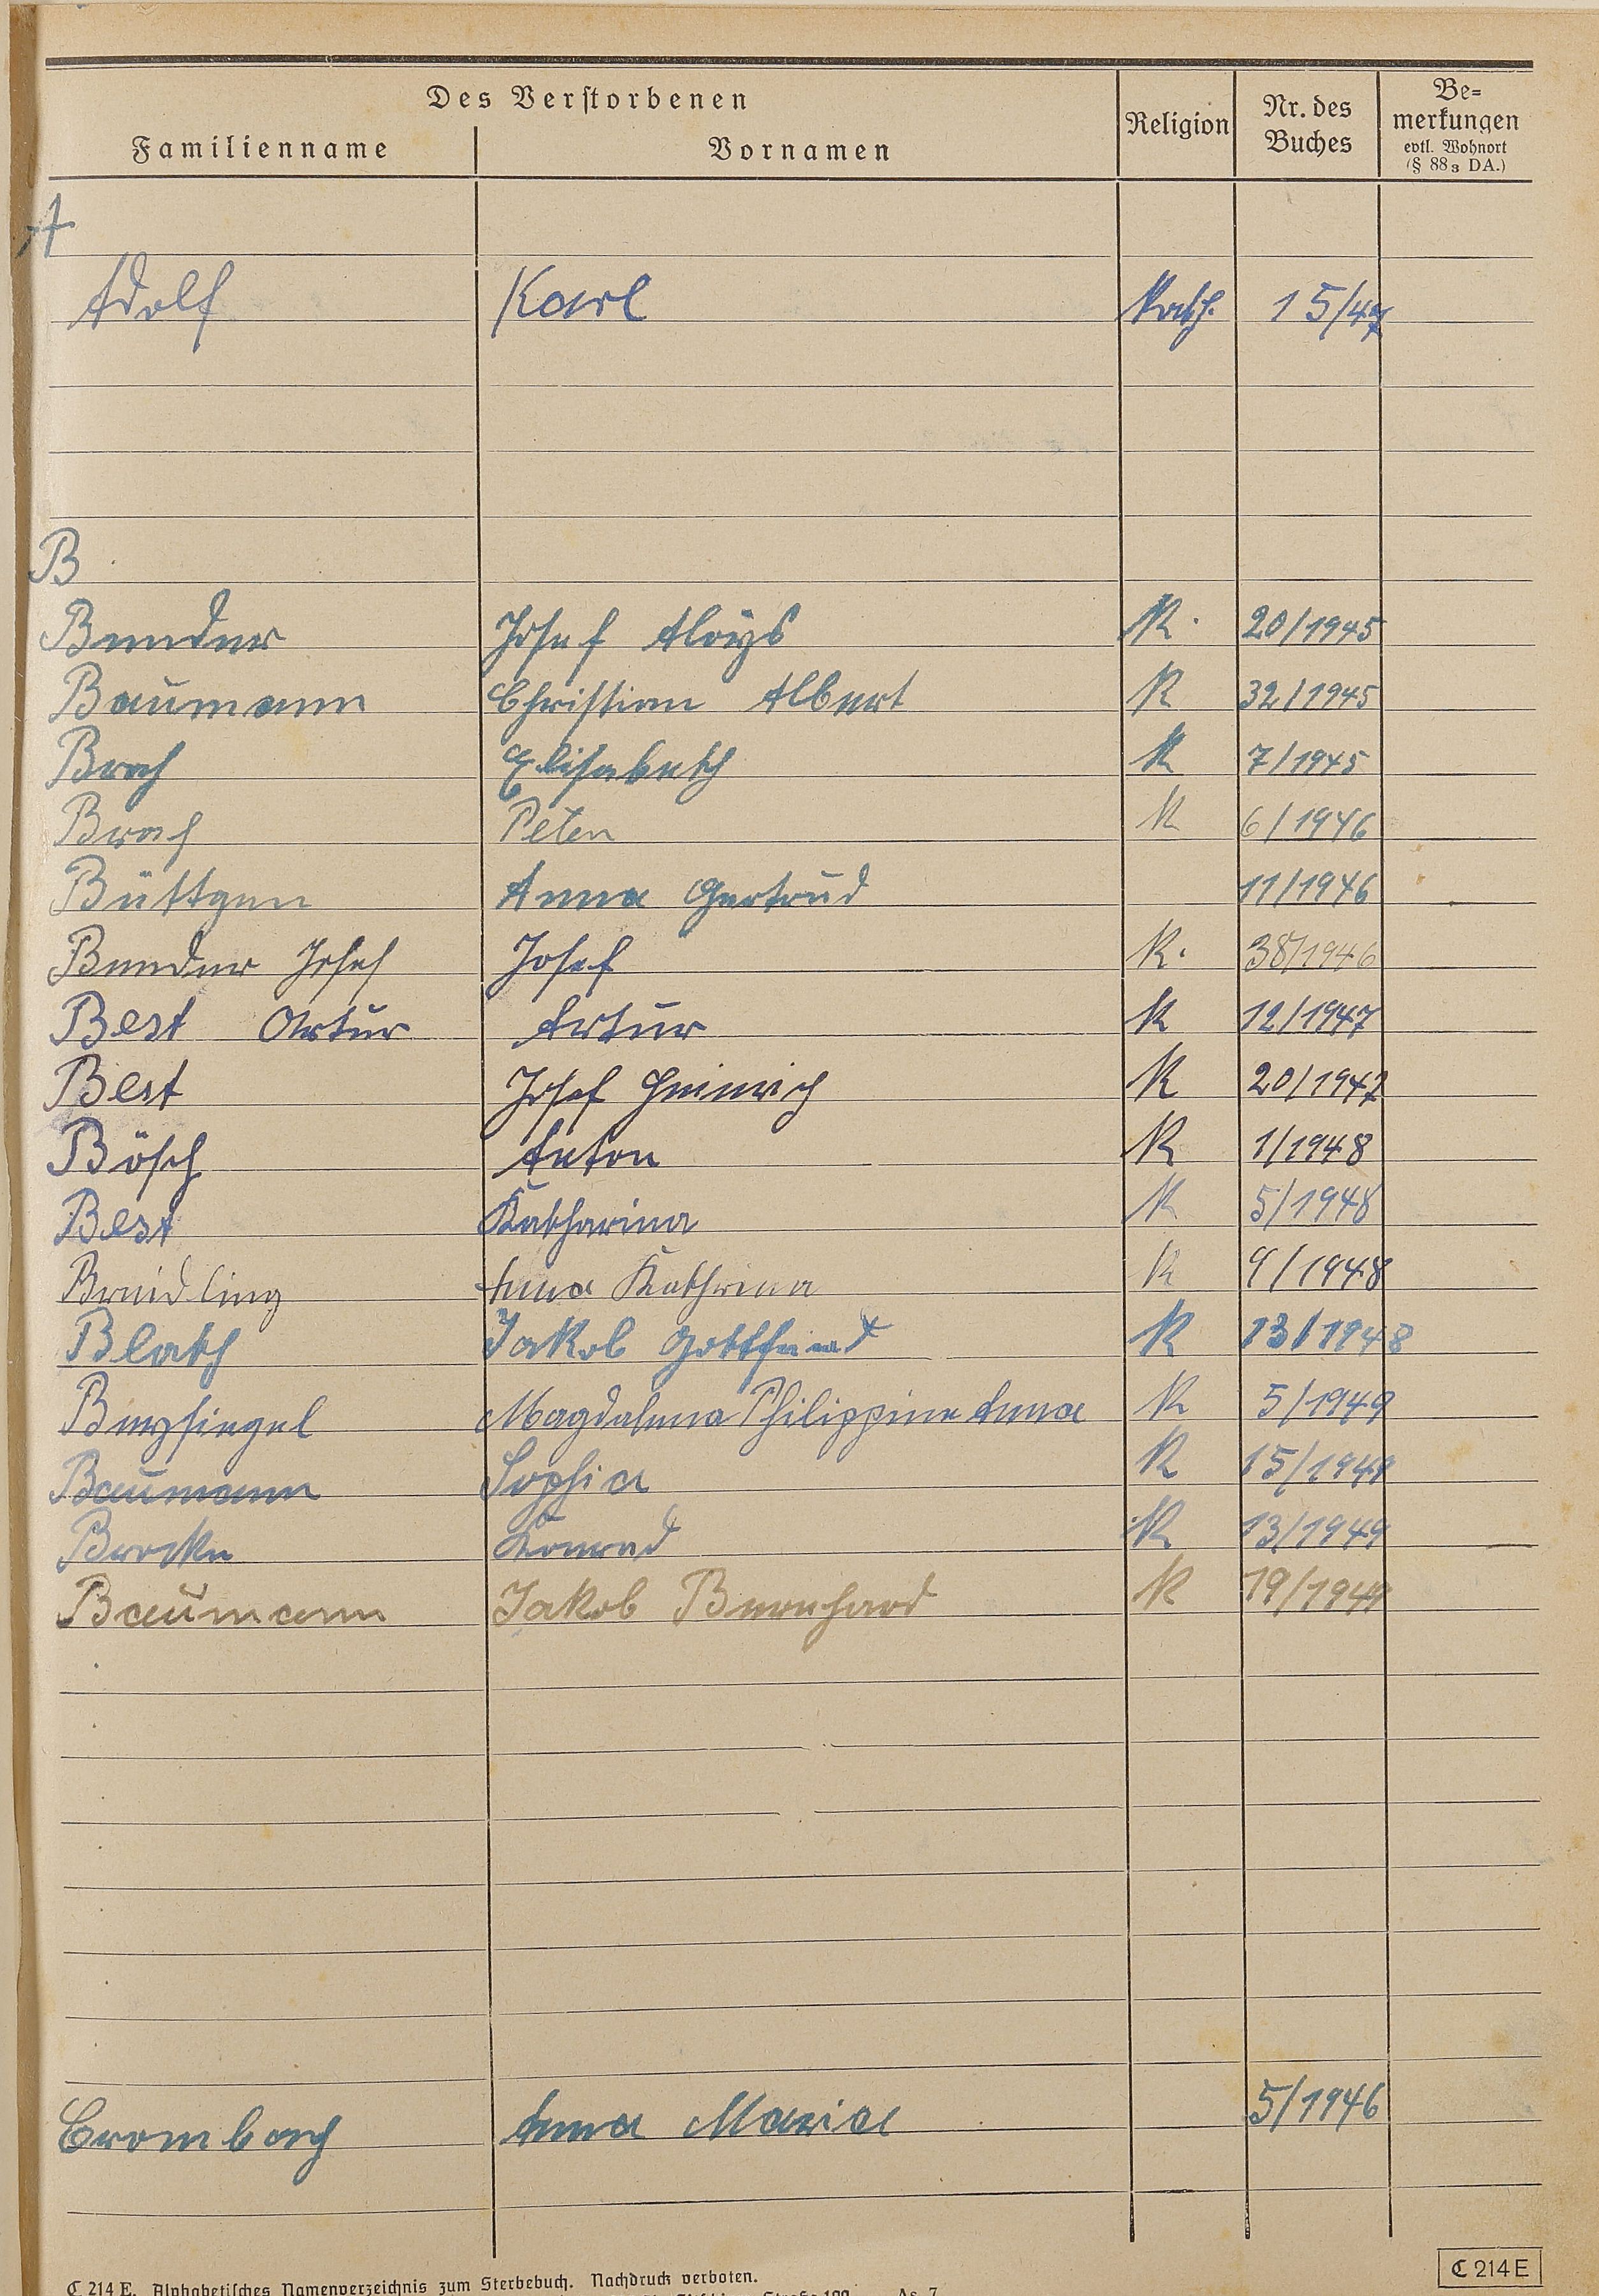 Des Verstorbenen
Familienname Vornamen Religion Nr. des Buches Be=merkungen evtl. Wohnort (§ 88 3 DA.)
A
Adolf Karl Kath. 15/47
B
Bender Josef Aloys K. 20/1945
Baumann Christian Albert K 32/1945
Brach Elisabeth K 7/1945
Brach Peter K 6/1946
Büttgen Anna Gertrud 11/1946
Bender Josef Josef K. 38/1946
Best Artur Artur K 12/1947
Best Josef Heinrich K 20/1947
Bösch Anton K 1/1948
Best Katharina K 5/1948
Breidling Anna Kathrina K 9/1948
Blath Jakob Gottfried K 13/1948
Beysiegel Magdalena Philippine Anna K 5/1949
Baumann Sophia K 15/1949
Brocke Konrad K 13/1949
Baumann Jakob Bernhard K 19/1949
Crombach Anna Maria 5/1946
C 214 E. Alphabetisches Namenverzeichnis zum Sterbebuch. Nachdruck verboten.
C 214 E